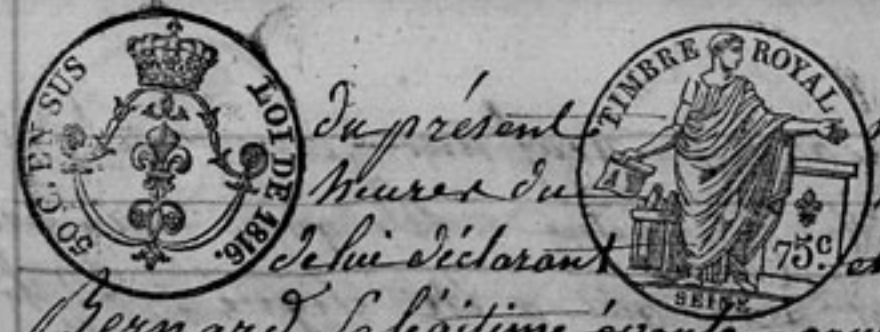 50 C. EN SUS LOI DE 1816.
TIMBRE ROYAL
75c.
SEINE
du présent
heures du
de lui déclarant et
Bernard légitime